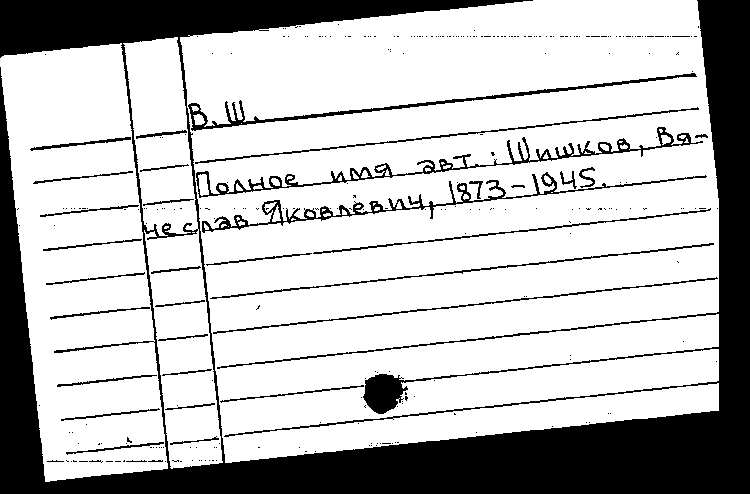 В. Ш.
Полное имя авт.: Шишков, Вя-
чеслав Яковлевич, 1873-1945.